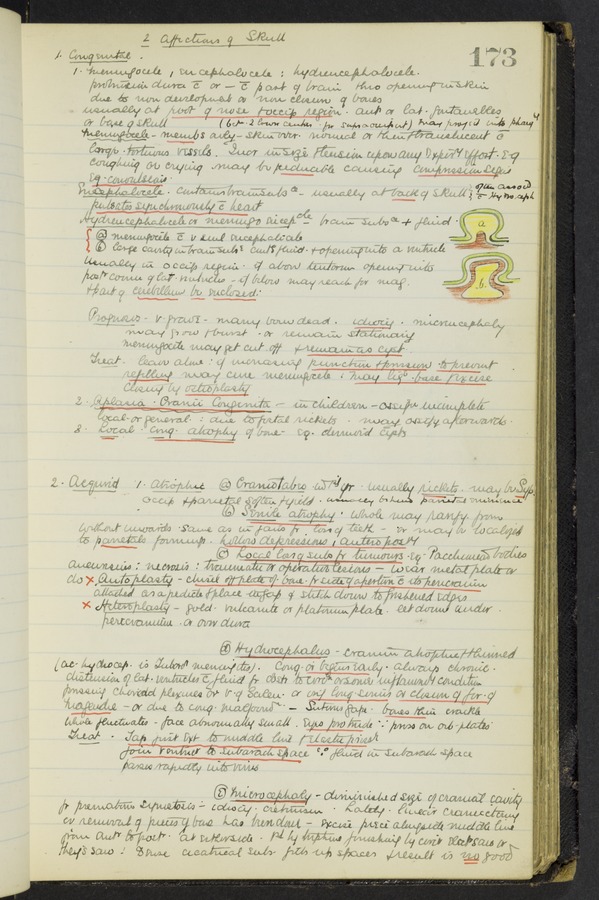 2 Affections of Skull
173
1. Congenital.
1. Meningocele, encephalocele; hydrencephalocele.
protrusion dura c̄ or – c̄ part of brain thro opening in skin
due to non development or non closure of bones
usually at root of nose & occip region. ant or lat. fontanelles
or base of skull
Meningocele - membs only - skin over normal or thin & translucent c̄
large tortuous vessels. Incr in size & tension upon any expiry effort. E.g
coughing or crying may be reducible causing compression signs
Eg. convulsions.
Encephalocele. contains brain subs - usually at back of skull; often assocd c̄ hydroceph
pulsates synchronously c̄ heart
Hydrencephalocele or meningo encepcle - brain subs + fluid.
a
(a) meningocele c̄ small encephalocele
(b) large cavity in brain subs contg fluid & opening into a ventricle
b.
Usually in occip region. if above tentorium opening into
post cornu of lat ventricles - if below may reach for mag.
& part of cerebellum be enclosed.
Prognosis - v. grave - many born dead. idiocy. microcephaly
may grow & burst. or remain stationary
meningocele may get cut off & remain as cyst.
Treat. leave alone: if increasing puncture & pressure to prevent
refilling may cure meningocele: may lig. base & excise
closing by osteoplasty
2. Aplasia Cranii Congenita - in children - ossifn incomplete
local or general: due to foetal rickets. may ossify afterwards.
3. Local cong. atrophy of bone - eg. dermoid cysts
2. Acquired 1. Atrophic (a) Craniotabes - usually rickets. may be Syp.
occip & parietal soften & yield.
(b) Senile atrophy. whole may rarefy from
without inwards same as in jaws fr. loss of teeth - or may be localised
to parietals forming hollow depressions, antero postly
(c) Local loss of subs fr tumours. Eg. Pacchionian bodies
aneurisms: necrosis: traumatic or operative lesions - wear metal plate or
do × Autoplasty - chisel off plate of bone fr side of aperture c̄ its pericranium
attached as a pedicle & place in gap & stitch down to freshened edges
× Heteroplasty - gold. vulcanite or platinum plate. let down under
pericranium or over dura
(d) Hydrocephalus - cranium atrophied & thinned
(ac. hydrocep. is tuberc meningitis). Cong. or begins early. always chronic.
distension of lat. ventricles c̄ fluid fr obst to circn or some inflammy condition
pressing choroid plexuses or v. of Galen. or cong. closure of for. of
Magendie - or due to cong. malformn. - Sutures gape. bones thin crackle
Whole fluctuates - face abnormally small. Eyes protrude ∵ press on orb plates
Treat. Tap just extr to middle line & elastic press
Join ventricle to subarach space ∵ fluid in subarach space
passes rapidly into veins
(e) Microcephaly - diminished size of cranial cavity
fr premature synostosis - idiocy. cretinism. Lately. linear craniectomy
or removal of pieces of bone has been done - excise piece alongside middle line
from ant to post. at either side. by trephine finishing by circ elect saw or
Hey's saw: Dense cicatricial subs fills up spaces & result is no good